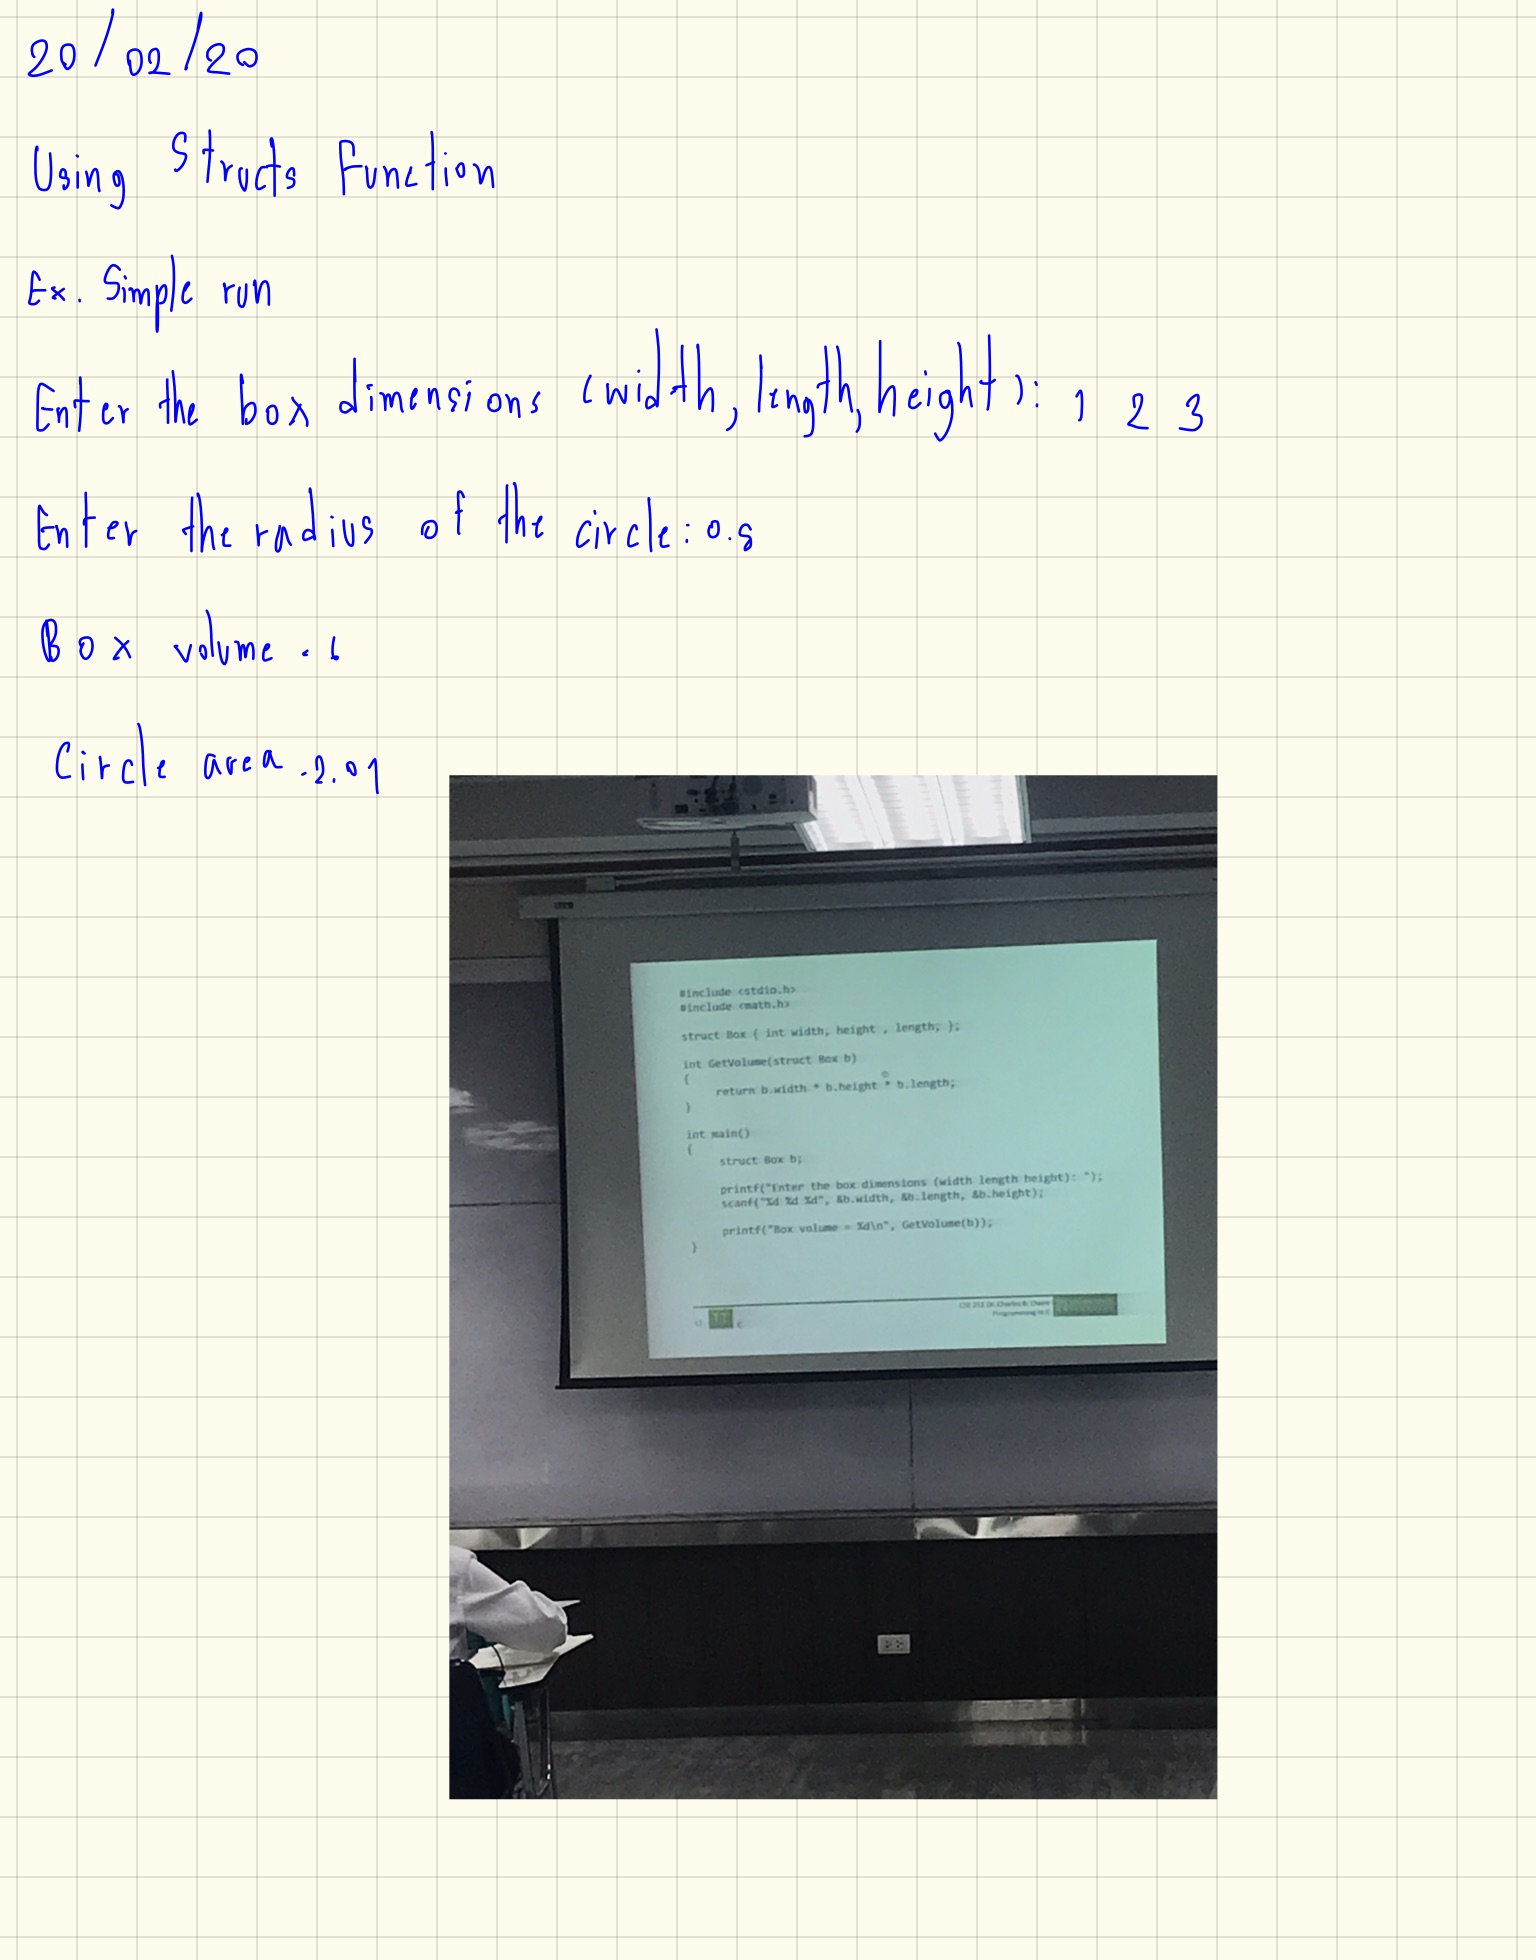 20/02/20
Using Structs Function
Ex. Simple run
Enter the box dimensions (width, length, height): 1 2 3
Enter the radius of the circle: 0.8
Box volume . 6
Circle area . 2.01
#include <stdio.h>
#include <math.h>
struct Box { int width, height , length; };
int GetVolume(struct Box b)
{
return b.width * b.height * b.length;
}
int main()
{
struct Box b;
printf("Enter the box dimensions (width length height): ");
scanf("%d %d %d", &b.width, &b.length, &b.height);
printf("Box volume = %d\n", GetVolume(b));
}
Programming in C